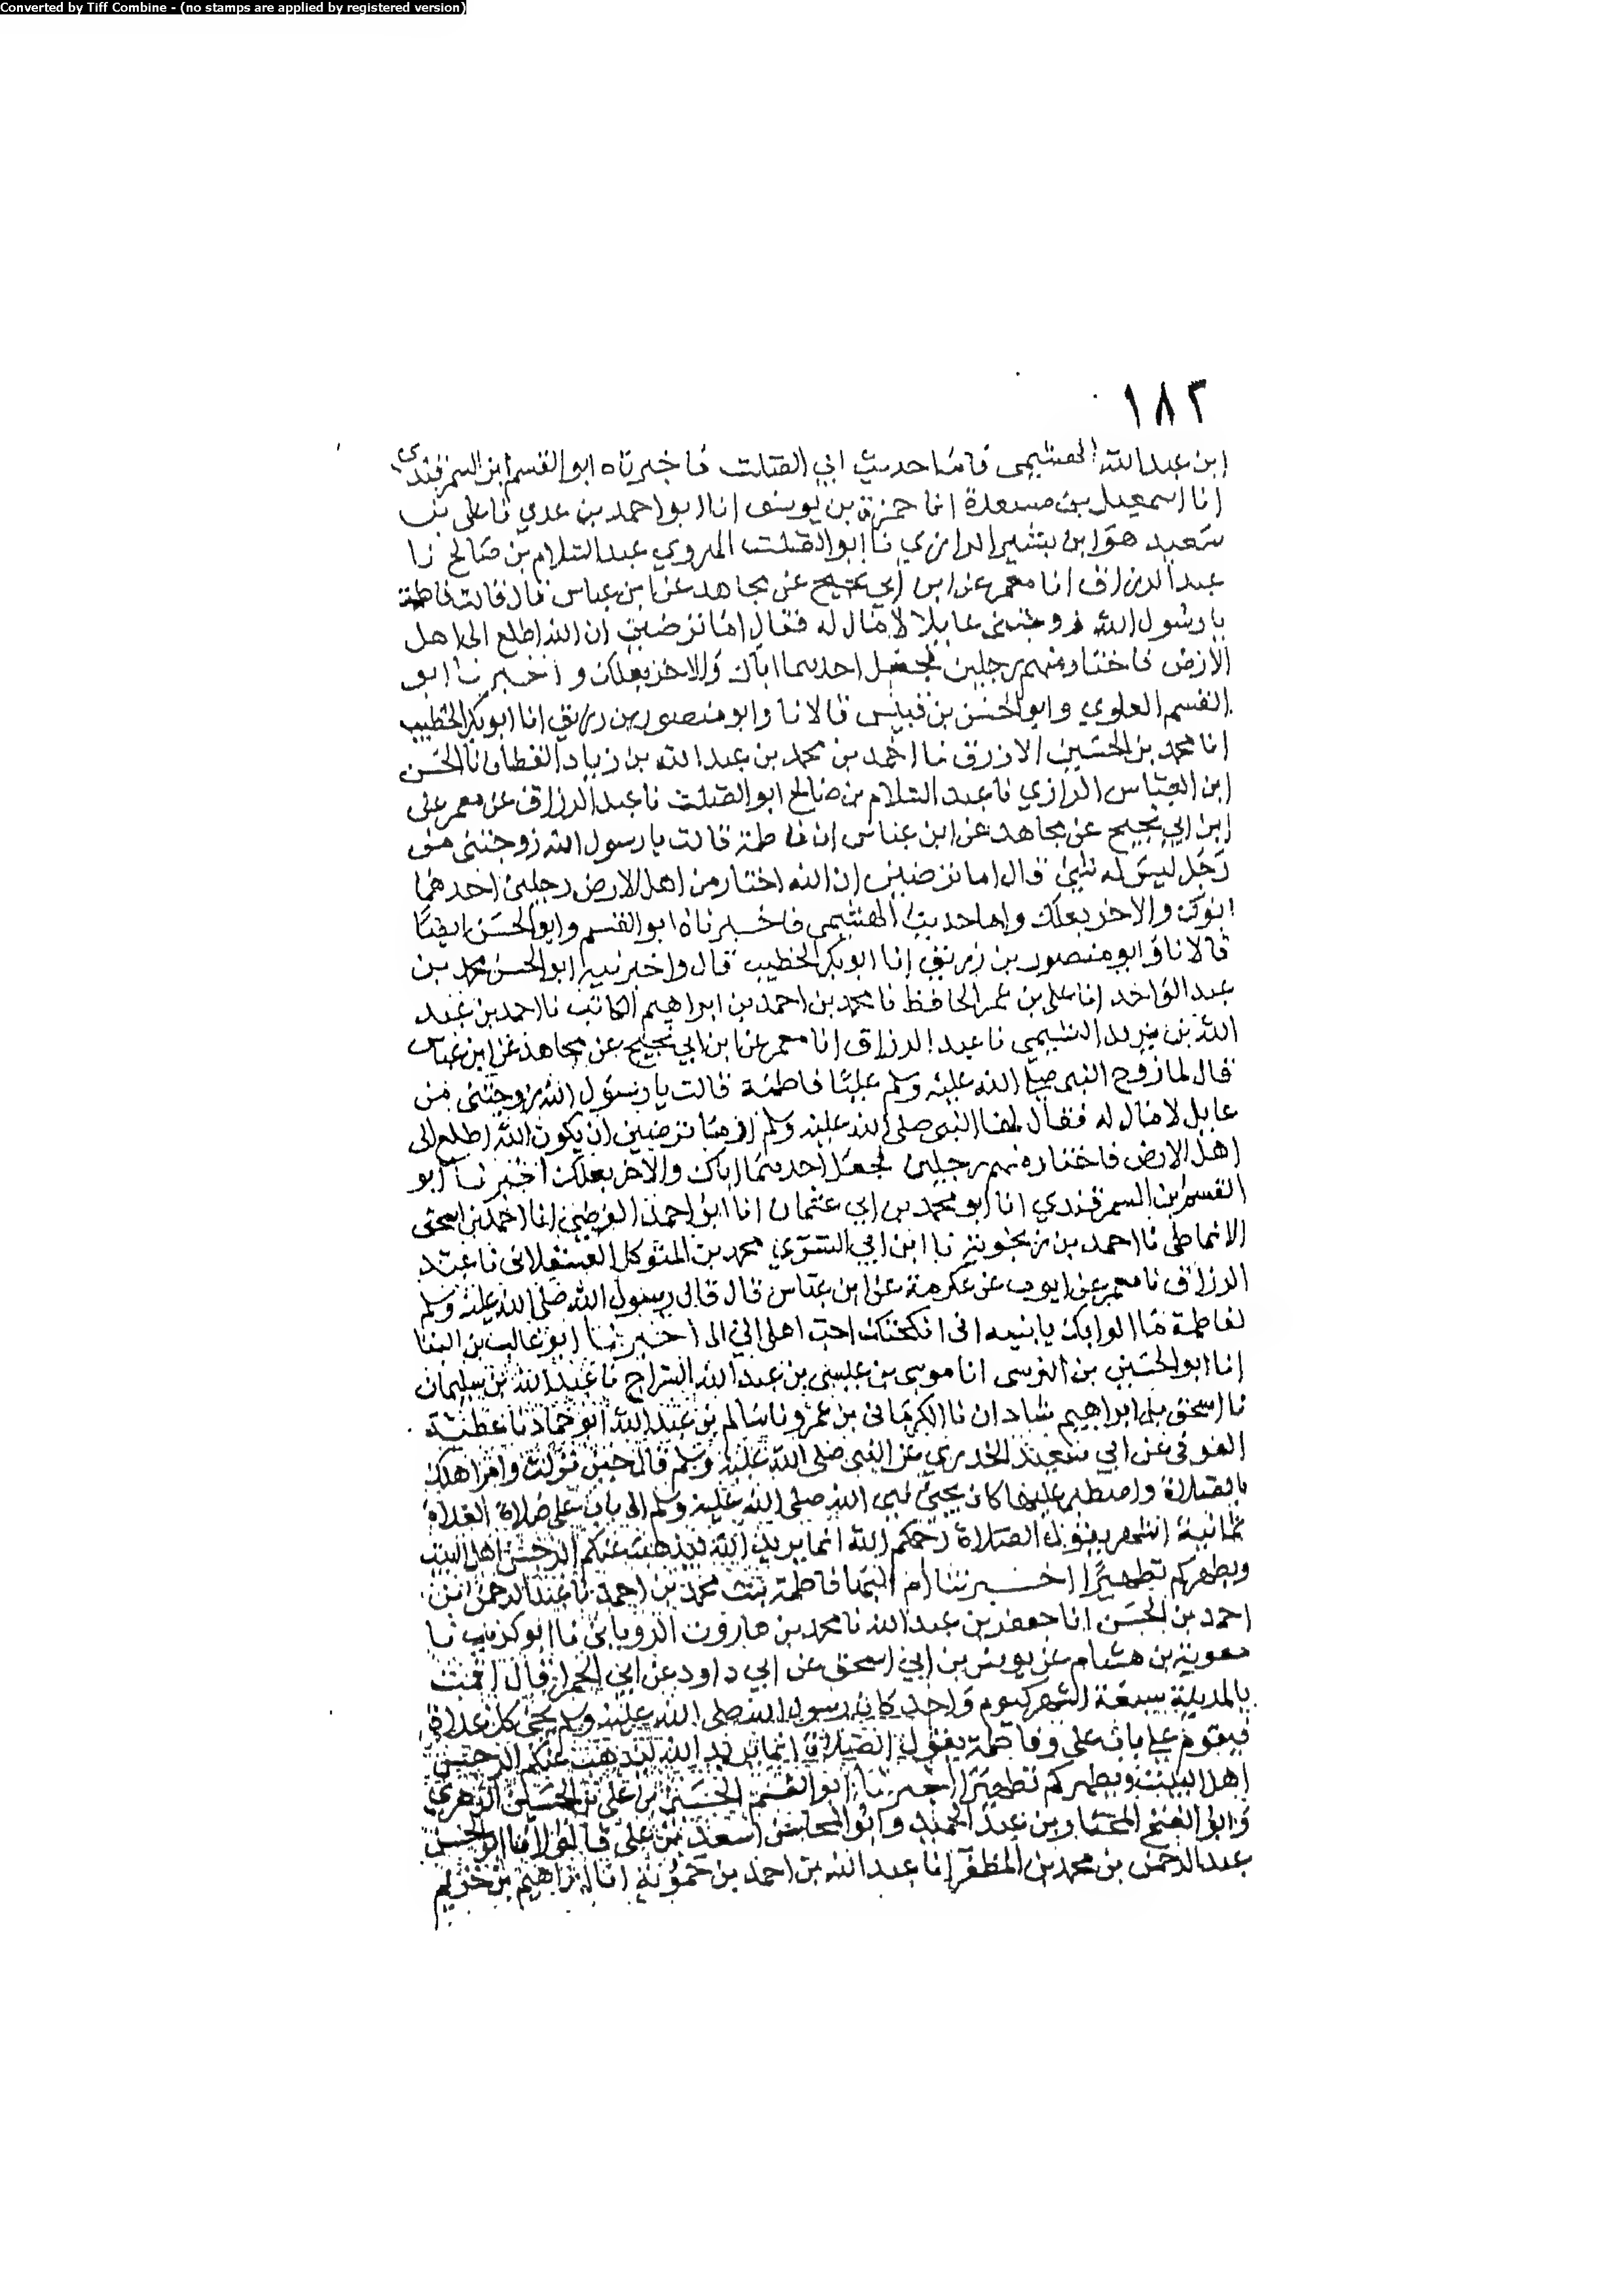 Converted by Tiff Combine - (no stamps are applied by registered version)
١٨٢
ابن عبد الله الهشيمي فاما حديث ابي الصلت فاخبرناه ابو القسم ابن السمرقندي
انا اسمعيل بن مسعدة انا حمزة بن يوسف انا ابو احمد بن عدي نا علي بن
سعيد هو ابن بشير الرازي نا ابو الصلت الهروي عبد السلام بن صالح نا
عبد الرزاق انا معمر عن ابن ابي نجيح عن مجاهد عن ابن عباس قال قالت فاطمة
يا رسول الله زوجتني عايلا لا مال له فقال اما ترضين ان الله اطلع الى اهل
الارض فاختار منهم رجلين فجعل احدهما اباك والاخر بعلك واخبرنا ابو
القسم العلوي وابو الحسن بن قبيس قالا نا وابو منصور بن زريق انا ابو بكر الخطيب
انا محمد بن الحسين الازرق نا احمد بن محمد بن عبد الله بن زياد القطان نا الحسن
ابن العباس الرازي نا عبد السلام بن صالح ابو الصلت نا عبد الرزاق عن معمر عن
ابن ابي نجيح عن مجاهد عن ابن عباس ان فاطمة قالت يا رسول الله زوجتني من
رجل ليس له شيئ قال اما ترضين ان الله اختار من اهل الارض رجلين احدهما
ابوك والاخر بعلك واما حديث الهشيمي فاخبرناه ابو القسم وابو الحسن ايضا
قالا نا وابو منصور بن زريق انا ابو بكر الخطيب قال واخبرنيه ابو الحسن محمد بن
عبد الواحد انا علي بن عمر الحافظ نا محمد بن احمد بن ابراهيم الكاتب نا احمد بن عبد
الله بن يزيد الهشيمي نا عبد الرزاق انا معمر عن ابن ابي نجيح عن مجاهد عن ابن عباس
قال لما زوج النبي صلى الله عليه وسلم عليا فاطمة قالت يا رسول الله زوجتني من
عايل لا مال له فقال لها النبي صلى الله عليه وسلم او ما ترضين ان يكون الله اطلع الى
اهل الارض فاختار منهم رجلين فجعل احدهما اباك والاخر بعلك اخبرنا ابو
القسم بن السمرقندي انا ابو محمد بن ابي عثمان انا ابو احمد الفرضي انا احمد بن اسحق
الانماطي نا احمد بن زنجويه نا ابن ابي السري محمد بن المتوكل العسقلاني نا عبد
الرزاق نا معمر عن ايوب عن عكرمة عن ابن عباس قال قال رسول الله صلى الله عليه وسلم
لفاطمة ما الوا بك يا بنيه اني انكحتك احب اهلي الي اخبرنا ابو غالب بن البنا
انا ابو الحسين بن النرسي انا موسى بن عيسى بن عبد الله السراج نا عبد الله بن سليمان
نا اسحق بن ابراهيم شاذان نا الكرماني بن عمرو نا سالم بن عبد الله ابو حماد نا عطية
العوفي عن ابي سعيد الخدري عن النبي صلى الله عليه وسلم قال حين نزلت وامر اهلك
بالصلاة واصطبر عليها كان يجيئ نبي الله صلى الله عليه وسلم الى باب علي صلاة الغداة
ثمانية اشهر يقول الصلاة رحمكم الله انما يريد الله ليذهب عنكم الرجس اهل البيت
ويطهركم تطهيرا اخبرتنا ام البها فاطمة بنت محمد بن احمد نا عبد الرحمن بن
احمد بن الحسن انا جعفر بن عبد الله نا محمد بن هارون الروياني نا ابو كريب نا
معوية بن هشام عن يونس بن ابي اسحق عن ابي داود عن ابي الحمرا قال اقمت
بالمدينة سبعة اشهر كيوم واحد كان رسول الله صلى الله عليه وسلم يجئ كل غداة
فيقوم على باب علي وفاطمة يقول الصلاة انما يريد الله ليذهب عنكم الرجس
اهل البيت ويطهركم تطهيرا اخبرنا ابو القسم الحسين بن علي بن الحسين الزهري
وابو الفتح المختار بن عبد الحميد وابو المحاسن اسعد بن علي قالوا انا ابو الحسن
عبد الرحمن بن محمد بن المظفر انا عبد الله بن احمد بن حمويه انا ابراهيم بن خزيم